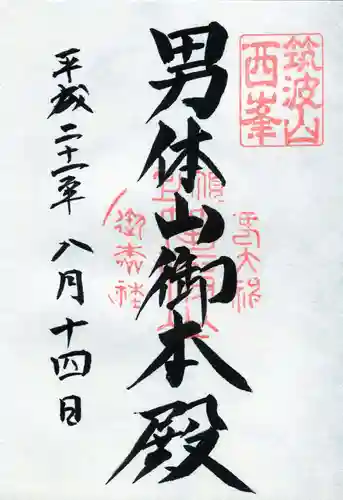 筑波山
西峯
男体山御本殿
平成二十一年八月十四日